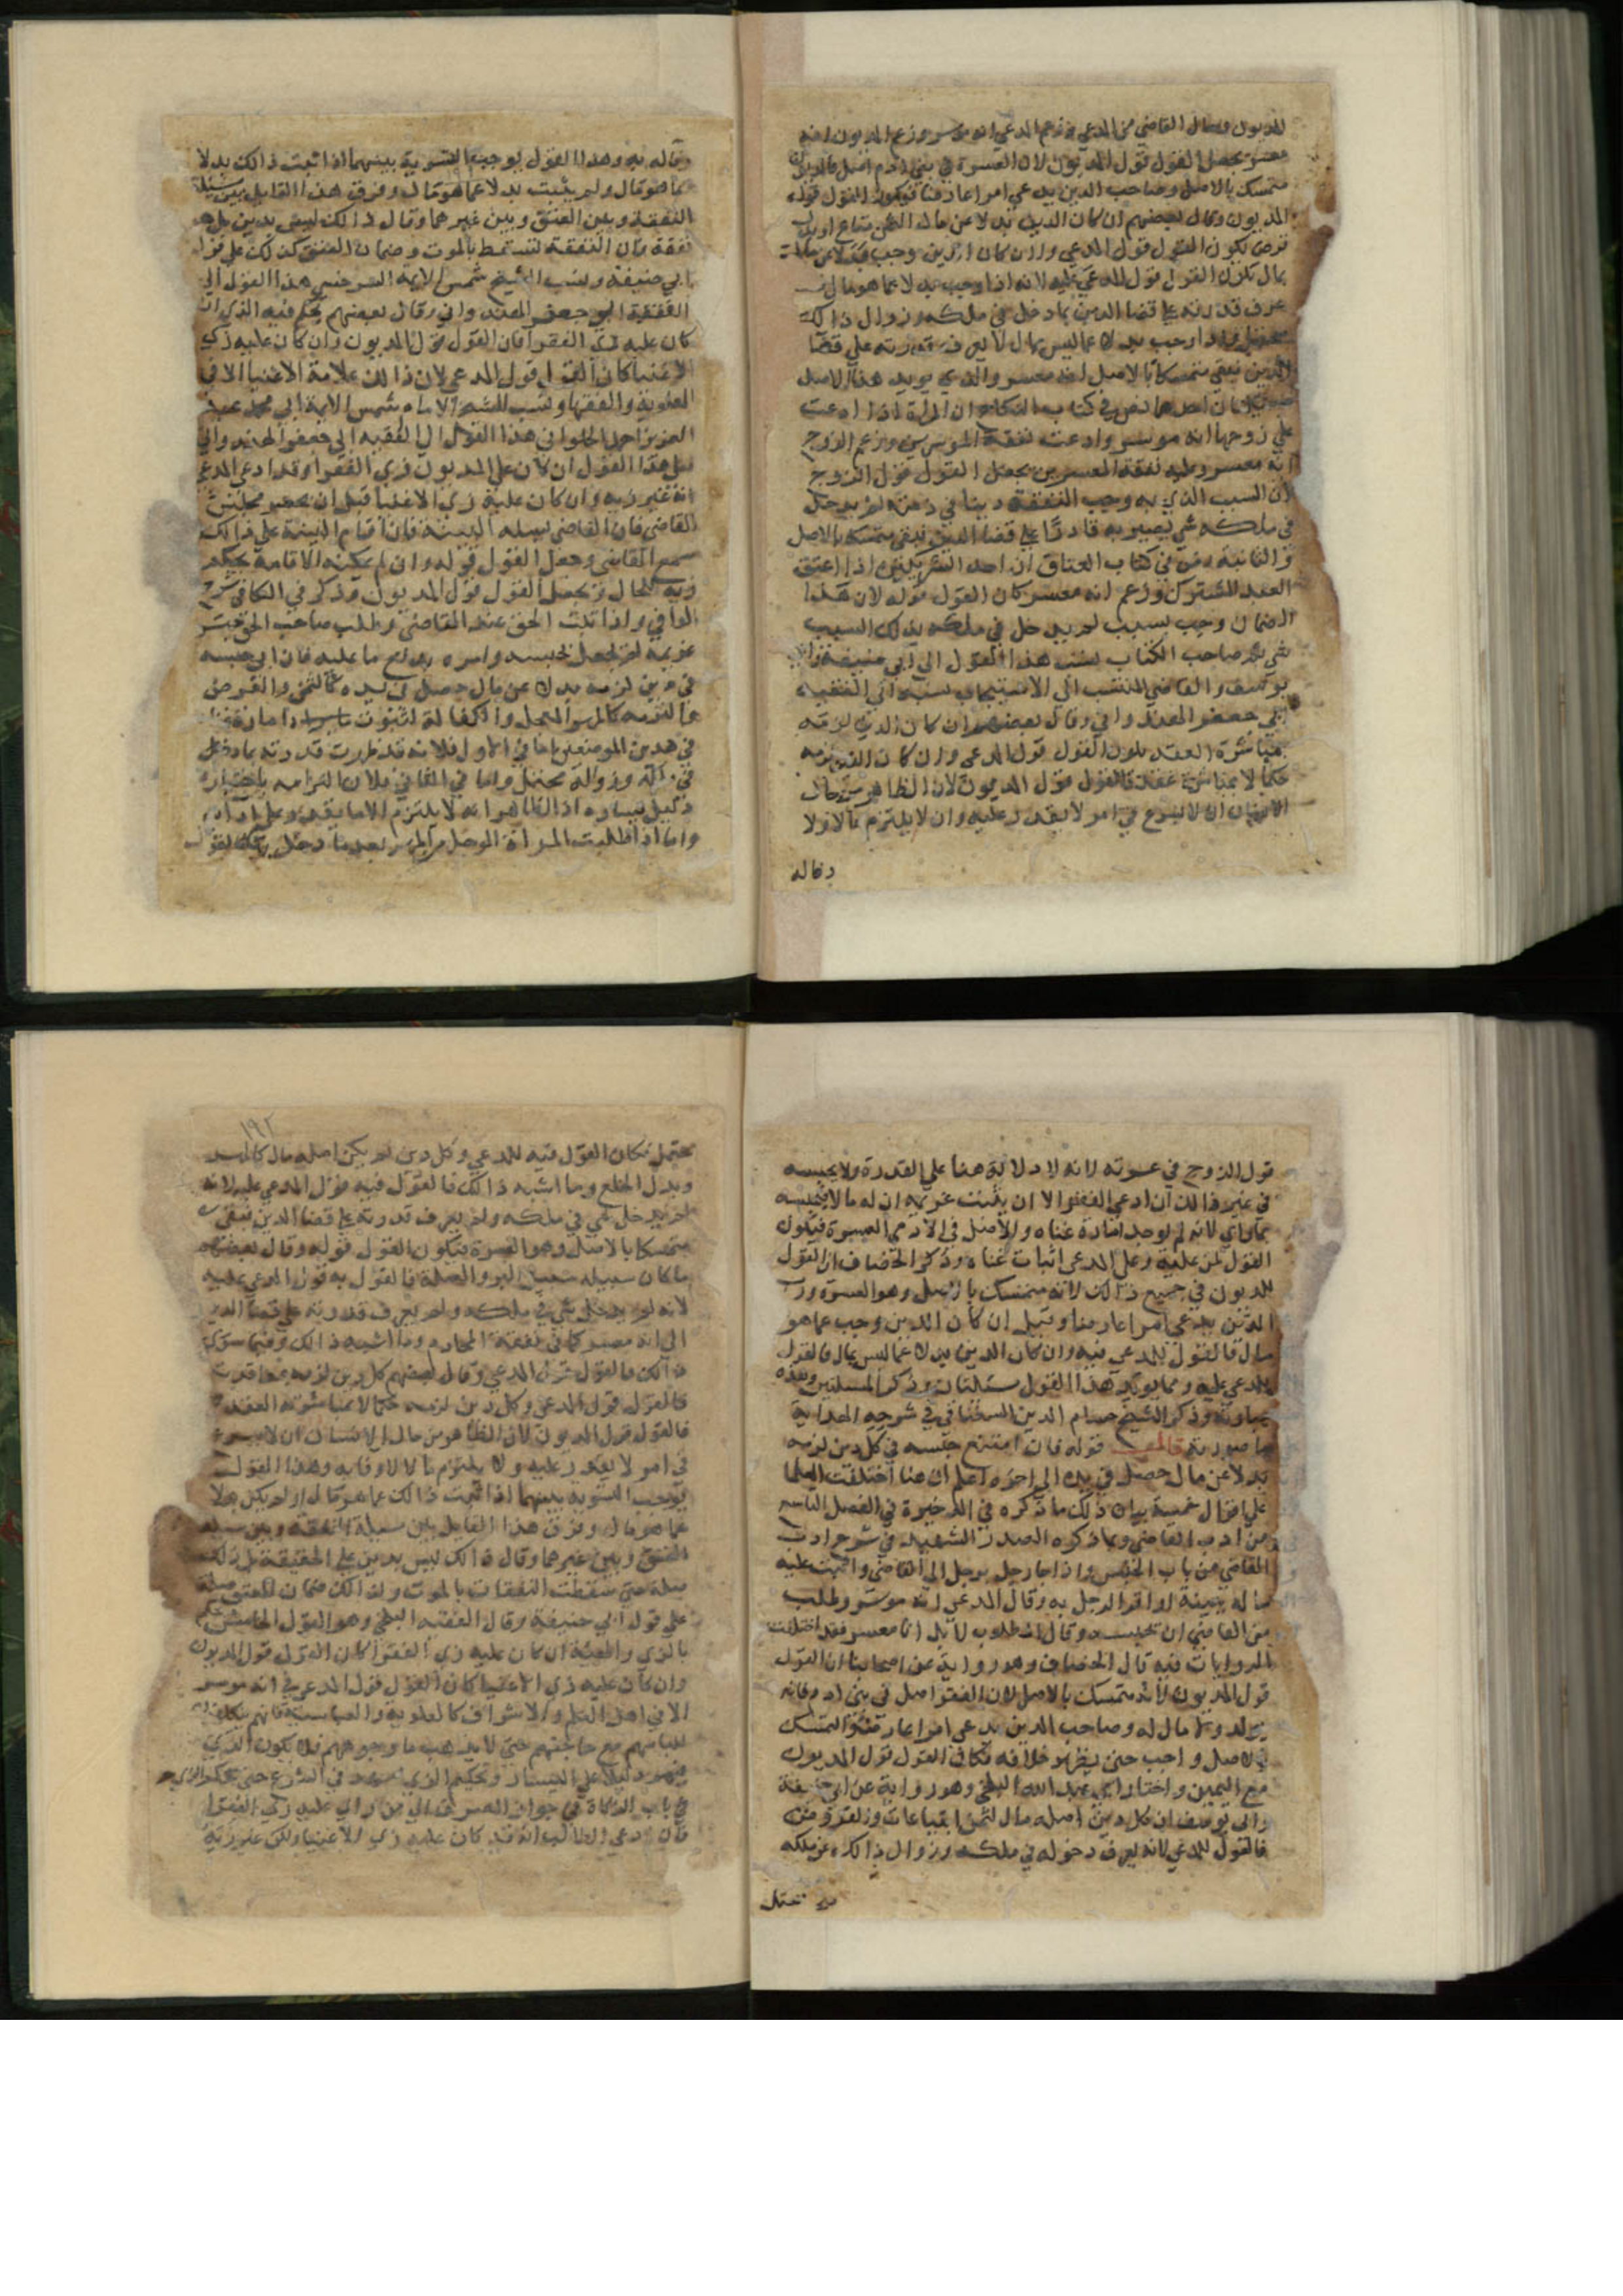 المديون وسال القاضي من المدعي فزعم المدعي انه موسر وزعم المديون انه
معسر يجعل القول قول المديون لان العسرة في بني ادم اصل فالمديون
متمسك بالاصل وصاحب الدين يدعي امرا عارضا فيكون القول قول
المديون وقال بعضهم ان كان الدين بدلا عن مال الثمن متاع او بدل
قرض يكون القول قول المدعي وان كان الدين وجب بدلا عن ما ليس
بمال يكون القول قول المدعي عليه لانه اذا وجب بدلا عما هو مال
عرف قدرته علي قضا الدين بما دخل في ملكه وزوال ذالك
محتمل واذا وجب بدلا عما ليس بمال لا يعرف قدرته علي قضا
الدين فبقي متمسكا بالاصل انه معسر والذي يويد هذا الاصل
احدهما نص في كتاب النكاح ان المراة اذا ادعت
علي زوجها انه موسر وادعت نفقة الموسرين وزعم الزوج
انه معسر وعليه نفقة المعسرين يجعل القول قول الزوج
لان السبب الذي به وجب النفقة دينا في ذمته لم يدخل
في ملكه شي يصير به قادرا علي قضا الدين فبقي متمسكا بالاصل
والثانيه نص في كتاب العتاق ان احد الشريكين اذا اعتق
العبد المشترك وزعم انه معسر كان القول قوله لان هذا
الضمان وجب بسبب لم يدخل في ملكه بذلك السبب
شي ثم صاحب الكتاب نسب هذا القول الي ابي حنيفة وابي
يوسف والقاضي المنتسب الي الاسبيجاب نسبه الي الفقيه
ابي جعفر الهندواني وقال بعضهم ان كان الدين لزمه
بمباشرة العقد يكون القول قول المدعي وان كان الدين لزمه
حكما لا بمباشرة عقد فالقول قول المديون لان الظاهر من حال
الانسان ان لا يشرع في امر لا يقدر عليه وان لا يلتزم مالا ولا
وفا له
وفا له به وهذا القول يوجب التسوية بينهما اذا ثبت ذالك بدلا
عما هو مال ولم يثبت بدلا عما هو مال وفرق هذا القايل بين مسئلة
النفقة وبين العتق وبين غيرهما وقال ذالك ليس بدين بل هو
نفقة فان النفقة تسقط بالموت وضمان العتق كذلك علي قول
ابي حنيفة ونسب الشيخ شمس الايمة السرخسي هذا القول الي
الفقيه ابو جعفر الهندواني وقال بعضهم يحكم فيه الذي ان
كان عليه زي الفقرا فان القول قول المديون وان كان عليه زي
الاغنيا كان القول قول المدعي لان ذالك علامة الاغنيا الا في
العلوية والفقها ونسب الشيخ الامام شمس الايمة ابي محمد عبد
العزيز احمد الحلواني هذا القول الي الفقيه ابي جعفر الهندواني
فعلي هذا القول ان كان علي المديون زي الفقرا وقد ادعي المدعي
انه غير زيه وان كان عليه زي الاغنيا قبل ان يحضر مجلس
القاضي فان القاضي يساله البينة فان اقام البينة علي ذالك
سمع القاضي وجعل القول قوله وان لم يمكنه الاقامة يحكم
زيه للحال فيجعل القول قول المديون وذكر في الكافي شرح
الوافي واذا ثبت الحق عند القاضي وطلب صاحب الحق حبس
غريمه لم يعجل لحبسه وامره بدفع ما عليه فان ابي حبسه
في دين لزمه بدلا عن مال حصل في يده كالثمن والقرض
والتزمه كالمهر المعجل والكفالة لثبوت يساره امارة
في هذين الموضعين اما في الاول فلانه قد ظهرت قدرته بما دخل
في يده وزواله محتمل واما في الثاني فلان التزامه باختياره
دليل يساره اذ الظاهر انه لا يلتزم الا ما يقدر علي ادائه
واما اذا طلبت المراة المؤجل من المهر بعد ما دخل بها فالقول
قول الزوج في عسرته لانه لا دلالة هنا علي القدرة ولا يحبسه
في غير ذالك ان ادعي الفقر الا ان يثبت غريمه ان له مالا فيحبسه
بما راي لانه لم يوجد امارة غناه والاصل في الادمي العسرة فيكون
القول لمن عليه وعلي المدعي اثبات غناه وذكر الخصاف ان القول
للمديون في جميع ذالك لانه متمسك بالاصل وهو العسرة ورب
الدين يدعي امرا عارضا وقيل ان كان الدين وجب عما هو
مال فالقول للمدعي فيه وان كان الدين بدلا عما ليس بمال فالقول
للمدعي عليه ومما يويد هذا القول مسئلتان وذكر المسئلتين وهذه
عبارته وذكر الشيخ حسام الدين السغناقي في شرح الهداية
ما صورته قال قوله فان امتنع حبسه في كل دين لزمه
بدلا عن مال حصل في يده الي اخره اعلم ان هنا اختلفت العلما
علي اقوال خمسة بيان ذلك ما ذكره في الذخيرة في الفصل التاسع
من ادب القاضي وما ذكره الصدر الشهيد في شرح ادب
القاضي من باب الحبس واذا جا رجل برجل الي القاضي واثبت عليه
ماله ببينة او اقر الرجل به وقال المدعي انه موسر وطلب
من القاضي ان يحبسه وقال المطلوب لا بل انا معسر فقد اختلفت
الروايات فيه قال الخصاف وهو رواية عن اصحابنا ان القول
قول المديون لانه متمسك بالاصل لان الفقر اصل في بني ادم فانه
يولد ولا مال له وصاحب الدين يدعي امرا عارضا والتمسك
بالاصل واجب حتى يظهر خلافه فكان القول قول المديون
مع اليمين واختار ابي عبد الله البلخي وهو رواية عن ابي حنيفة
وابي يوسف ان كل دين اصله مال كثمن البياعات والقروض
فالقول للمدعي لانه يعرف دخوله في ملكه وزوال ذالك عن ملكه
محتمل
١٩٢
محتمل فكان القول فيه للمدعي وكل دين لم يكن اصله مال كالمهر
وبدل الخلع وما اشبه ذالك فالقول فيه قول المدعي عليه لانه
لم يدخل شي في ملكه ولم يعرف قدرته علي قضا الدين فبقي
متمسكا بالاصل وهو العسرة فيكون القول قوله وقال بعضهم
ما كان سبيله سبيل البر والصلة فالقول به قول المدعي عليه
لانه لم يدخل شي في ملكه ولم يعرف قدرته علي قضا الدين
الي انه معسر كما في نفقة المحارم وما اشبه ذالك وفيما سوي
ذالك فالقول قول المدعي وقال بعضهم كل دين لزمه بمعاقدة
فالقول قول المدعي وكل دين لزمه حكما لا بمباشرة العقد
فالقول قول المديون لان الظاهر من حال الانسان ان لا يشرع
في امر لا يقدر عليه ولا يلتزم مالا لا وفا به وهذا القول
يوجب التسوية بينهما اذا ثبت ذالك عما هو مال او لم يكن بدلا
عما هو مال وفرق هذا القايل بين مسئلة النفقة وبين مسئلة
العتق وبين غيرهما وقال ذالك ليس بدين علي الحقيقة بل ذلك
صلة حتى سقطت النفقات بالموت وكذالك ضمان العتق صلة
علي قول ابي حنيفة وقال الفقيه البلخي وهو القول الخامس يحكم
بالزي والهيئة ان كان عليه زي الفقرا كان القول قول المديون
وان كان عليه زي الاغنيا كان القول قول المدعي في انه موسر
الا في اهل العلم والاشراف كالعلوية والعباسية فانهم يتكلفون
للباسهم مع حاجتهم حتى لا يذهب ما وجوههم فلا يكون الزي
فيهم دليلا علي اليسار وتحكيم الزي في الشرع حتى يحكم الزي
في باب الزكاة في جواز الصرف الي من راي عليه زي الفقرا
فان ادعي الطالب انه قد كان عليه زي الاغنيا ولكن غير زيه